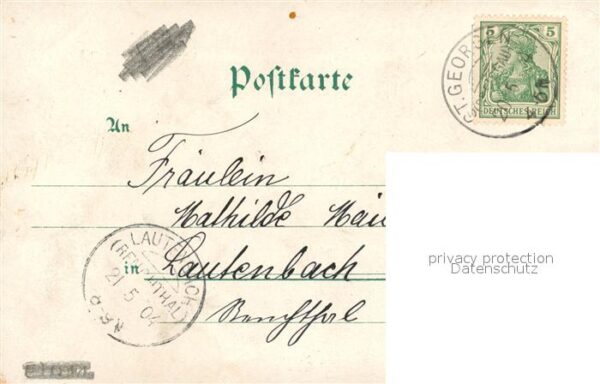 Postkarte
5 5
DEUTSCHES REICH
ST. GEORGEN
An
Fräulein
Mathilde Mai
in Lautenbach
Renchthal
LAUTENBACH
(RENCHTHAL)
21 5 04
privacy protection
Datenschutz